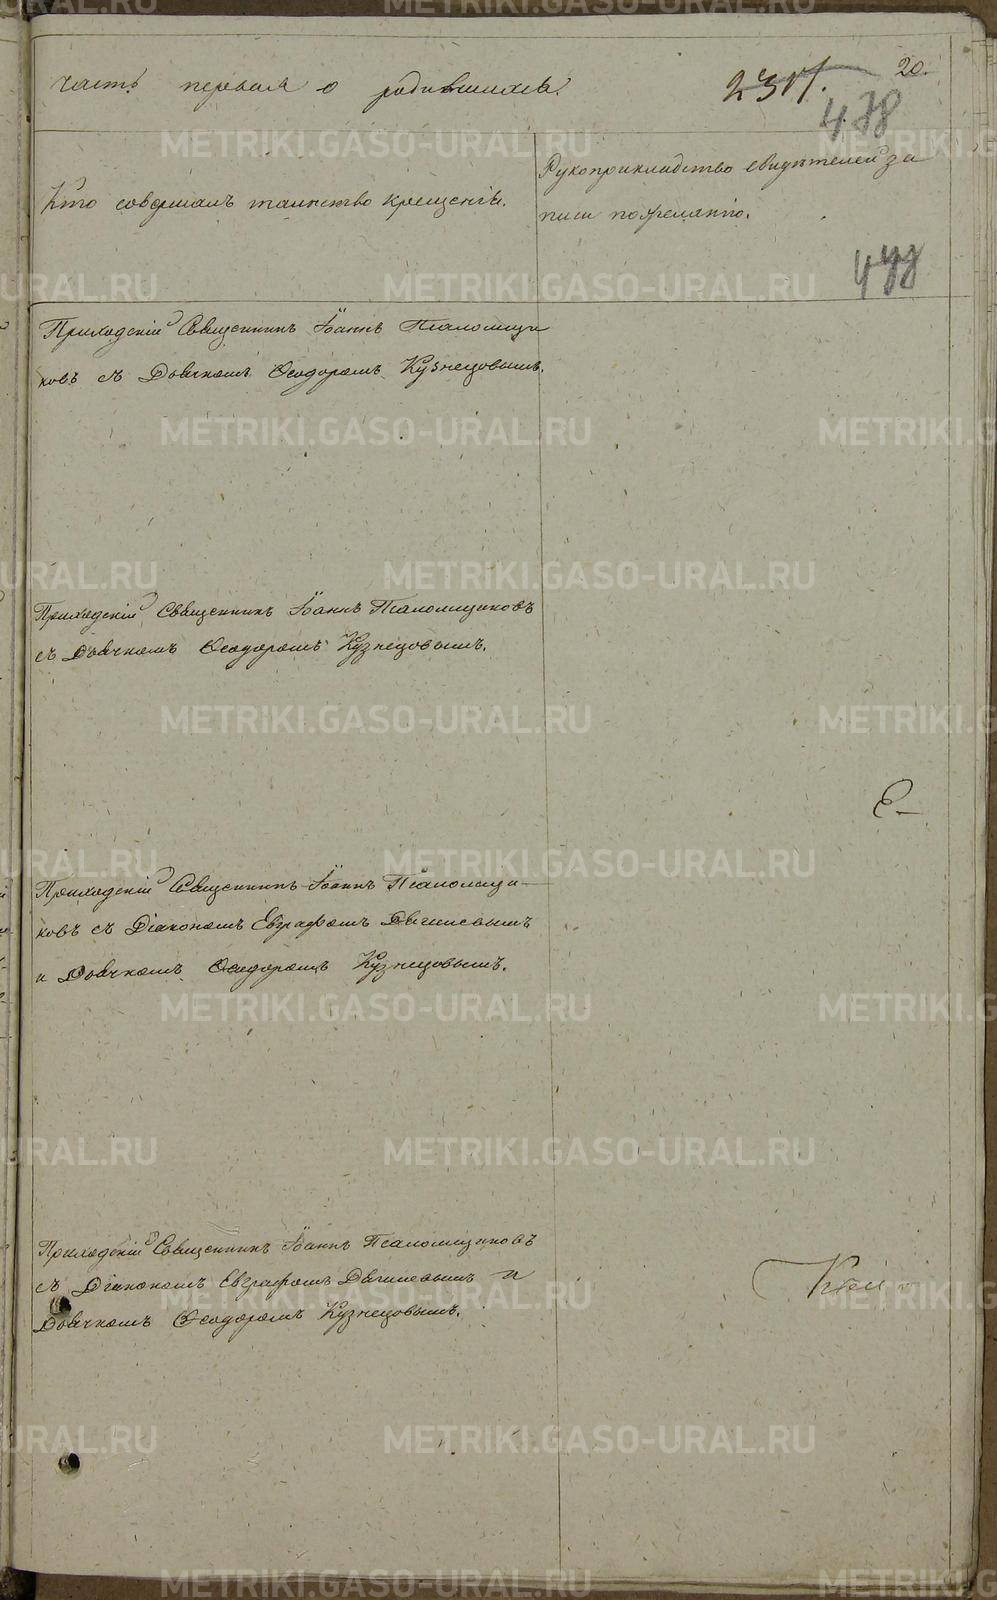 часть первая о родившихся.
237.
20.
478
Кто совершалъ таинство крещенія.
Рукоприкладство свидѣтелей за
писи по желанію.
478
Приходскій Священникъ Іоаннъ Псаломщи
ковъ съ Дьячкомъ Ѳеодоромъ Кузнецовымъ.
Приходскій Священникъ Іоаннъ Псаломщиковъ
съ Дьячкомъ Ѳеодоромъ Кузнецовымъ.
Приходскій Священникъ Іоаннъ Псаломщи-
ковъ съ Діакономъ Евграфомъ
и Дьячкомъ Ѳеодоромъ Кузнецовымъ.
Приходскій Священникъ Іоаннъ Псаломщиковъ
съ Діакономъ Евграфомъ и
Дьячкомъ Ѳеодоромъ Кузнецовымъ.
METRIKI.GASO-URAL.RU